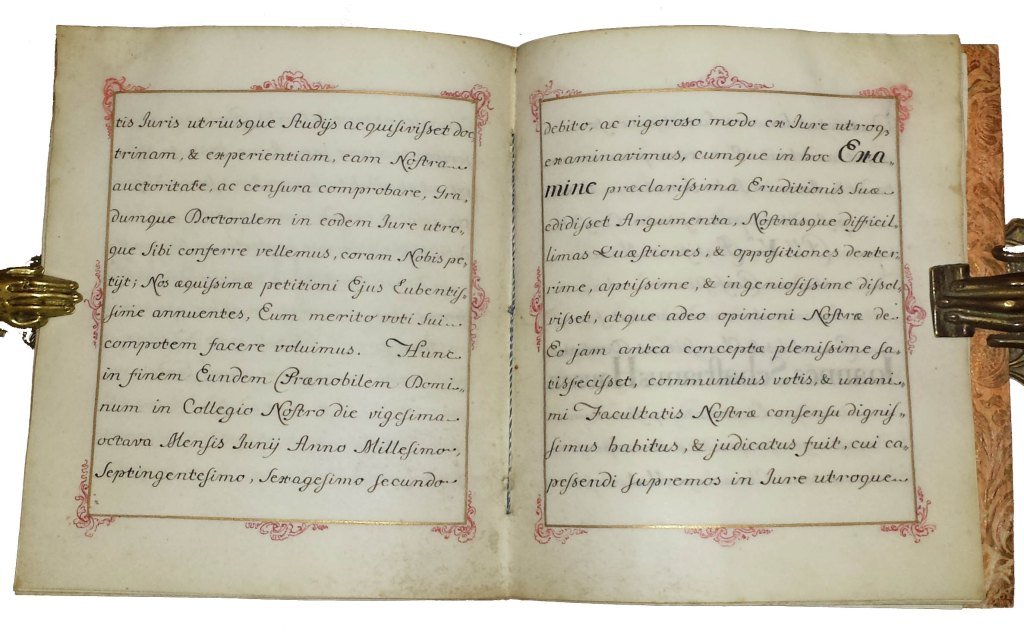 tis Iuris utriusque Studijs acquisivisset doc
trinam, & experientiam, eam Nostra
auctoritate, ac censura comprobare, Gra,
dumque Doctoralem in eodem Iure utro,
que Sibi conferre vellemus, coram Nobis pe,
tijt; Nos æquissimæ petitioni Ejus Lubentis,
sime annuentes, Eum merito voti sui
compotem facere voluimus. Hunc
in finem Eundem Prænobilem Domi,
num in Collegio Nostro die vigesima
octava Mensis Iunij Anno Millesimo,
Septingentesimo, Sexagesimo secundo
debito, ac rigoroso modo ex Iure utroq,
examinavimus, cumque in hoc Exa,
mine præclarissima Eruditionis Suæ
edidisset Argumenta, Nostrasque difficil,
limas Quæstiones, & oppositiones dexter,
rime, aptissime, & ingeniosissime dissol,
visset, atque adeo opinioni Nostræ de
Eo jam antea conceptæ plenissime sa,
tisfecisset, communibus votis, & unani,
mi Facultatis Nostræ consensu dignis,
simus habitus, & judicatus fuit, cui ca,
pessendi supremos in Iure utroque